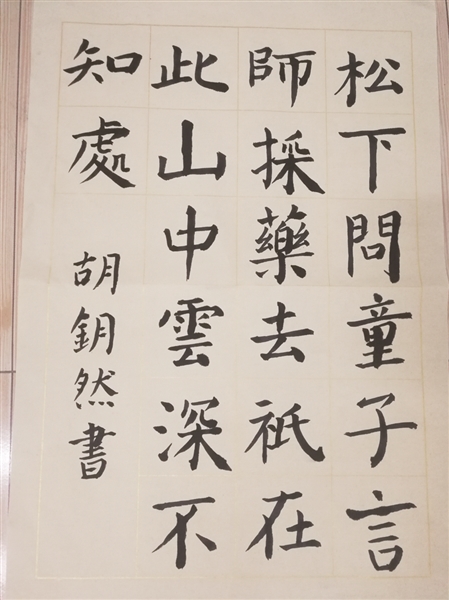 松下問童子言
師採藥去祇在
此山中雲深不
知處
胡鈅然書